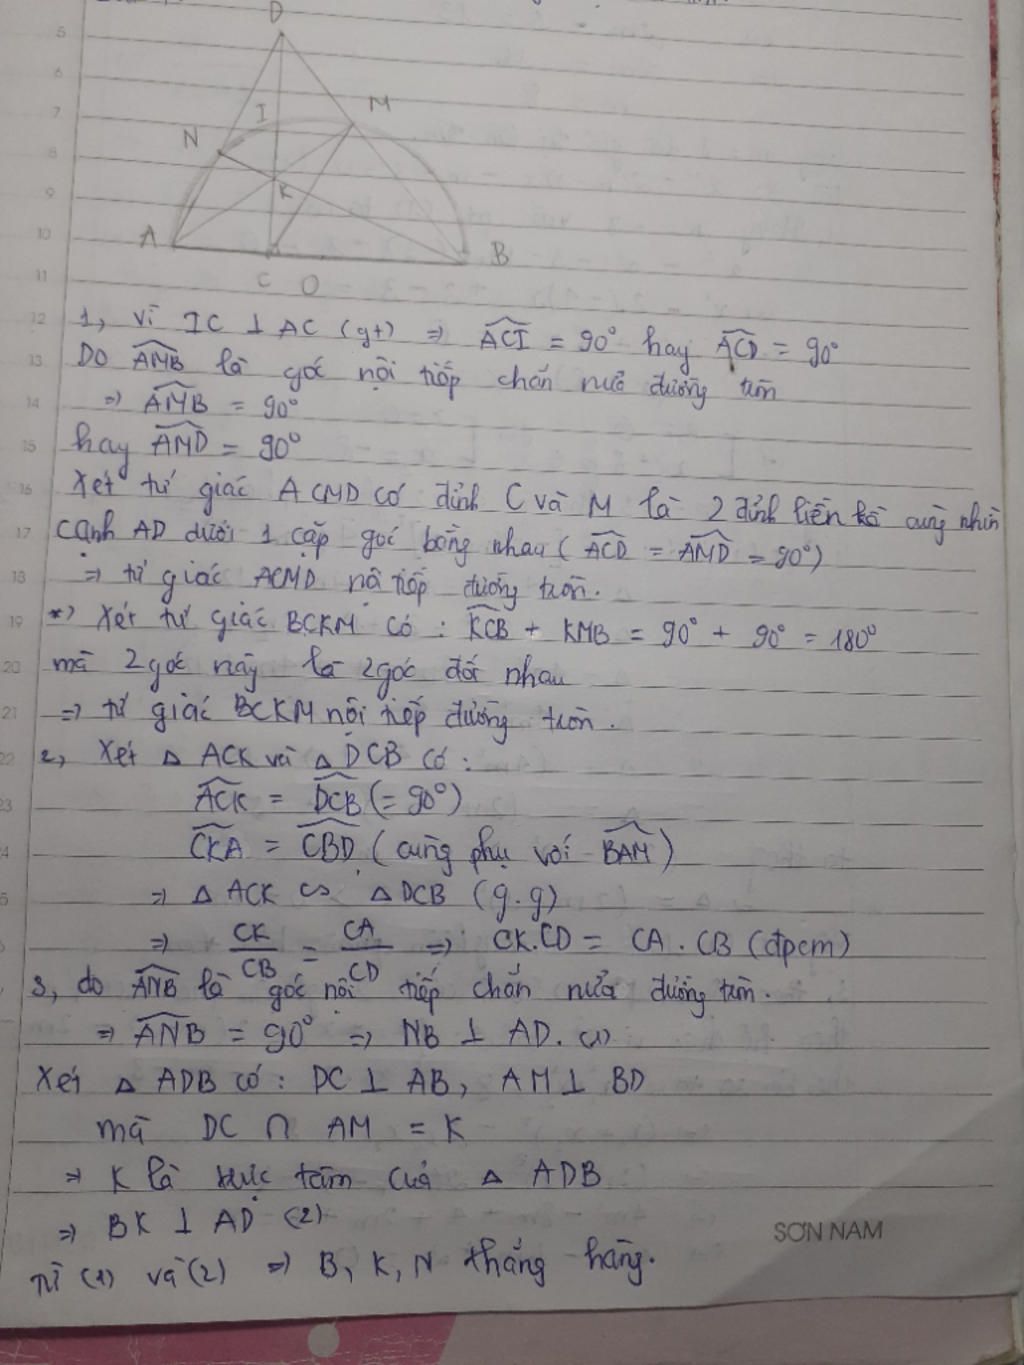 D
5
6
I
M
7
N
8
9
K
A
10
B
C O
11
12 1, Vì IC ⊥ AC (gt) ⇒ ACI = 90° hay ACD = 90°
13 Do AMB là góc nội tiếp chắn nửa đường tròn
14 ⇒ AMB = 90°
15 hay AMD = 90°
16 Xét tứ giác ACMD có đỉnh C và M là 2 đỉnh liền kề cùng nhìn
17 cạnh AD dưới 1 cặp góc bằng nhau (ACD = AMD = 90°)
18 ⇒ tứ giác ACMD nội tiếp đường tròn.
19 *) Xét tứ giác BCKM có : KCB + KMB = 90° + 90° = 180°
20 mà 2 góc này là 2 góc đối nhau
21 ⇒ tứ giác BCKM nội tiếp đường tròn.
22 2, Xét △ ACK và △ DCB có :
23 ACK = DCB (= 90°)
CKA = CBD (cùng phụ với BAM)
⇒ △ ACK ∽ △ DCB (g.g)
⇒ CK/CB = CA/CD ⇒ CK.CD = CA . CB (đpcm)
3, do ANB là góc nội tiếp chắn nửa đường tròn.
⇒ ANB = 90° ⇒ NB ⊥ AD. (1)
Xét △ ADB có : DC ⊥ AB, AM ⊥ BD
mà DC ∩ AM = K
⇒ K là trực tâm của △ ADB
⇒ BK ⊥ AD (2)
SƠN NAM
Từ (1) và (2) ⇒ B, K, N thẳng hàng.